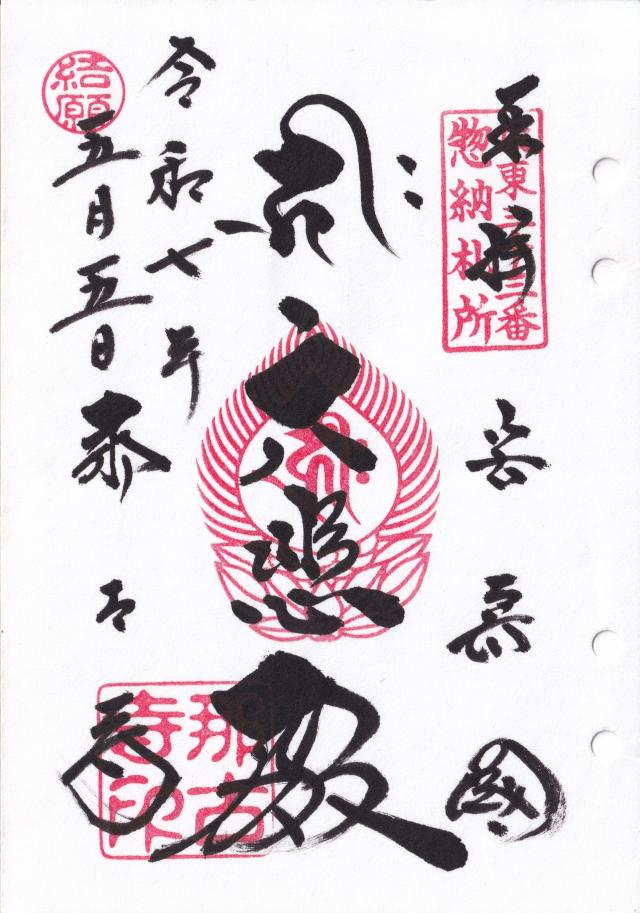 奉拝
坂東三十三番
惣納札所
安房國
大悲殿
令和七年
結願
五月五日
那古寺
那古
寺印